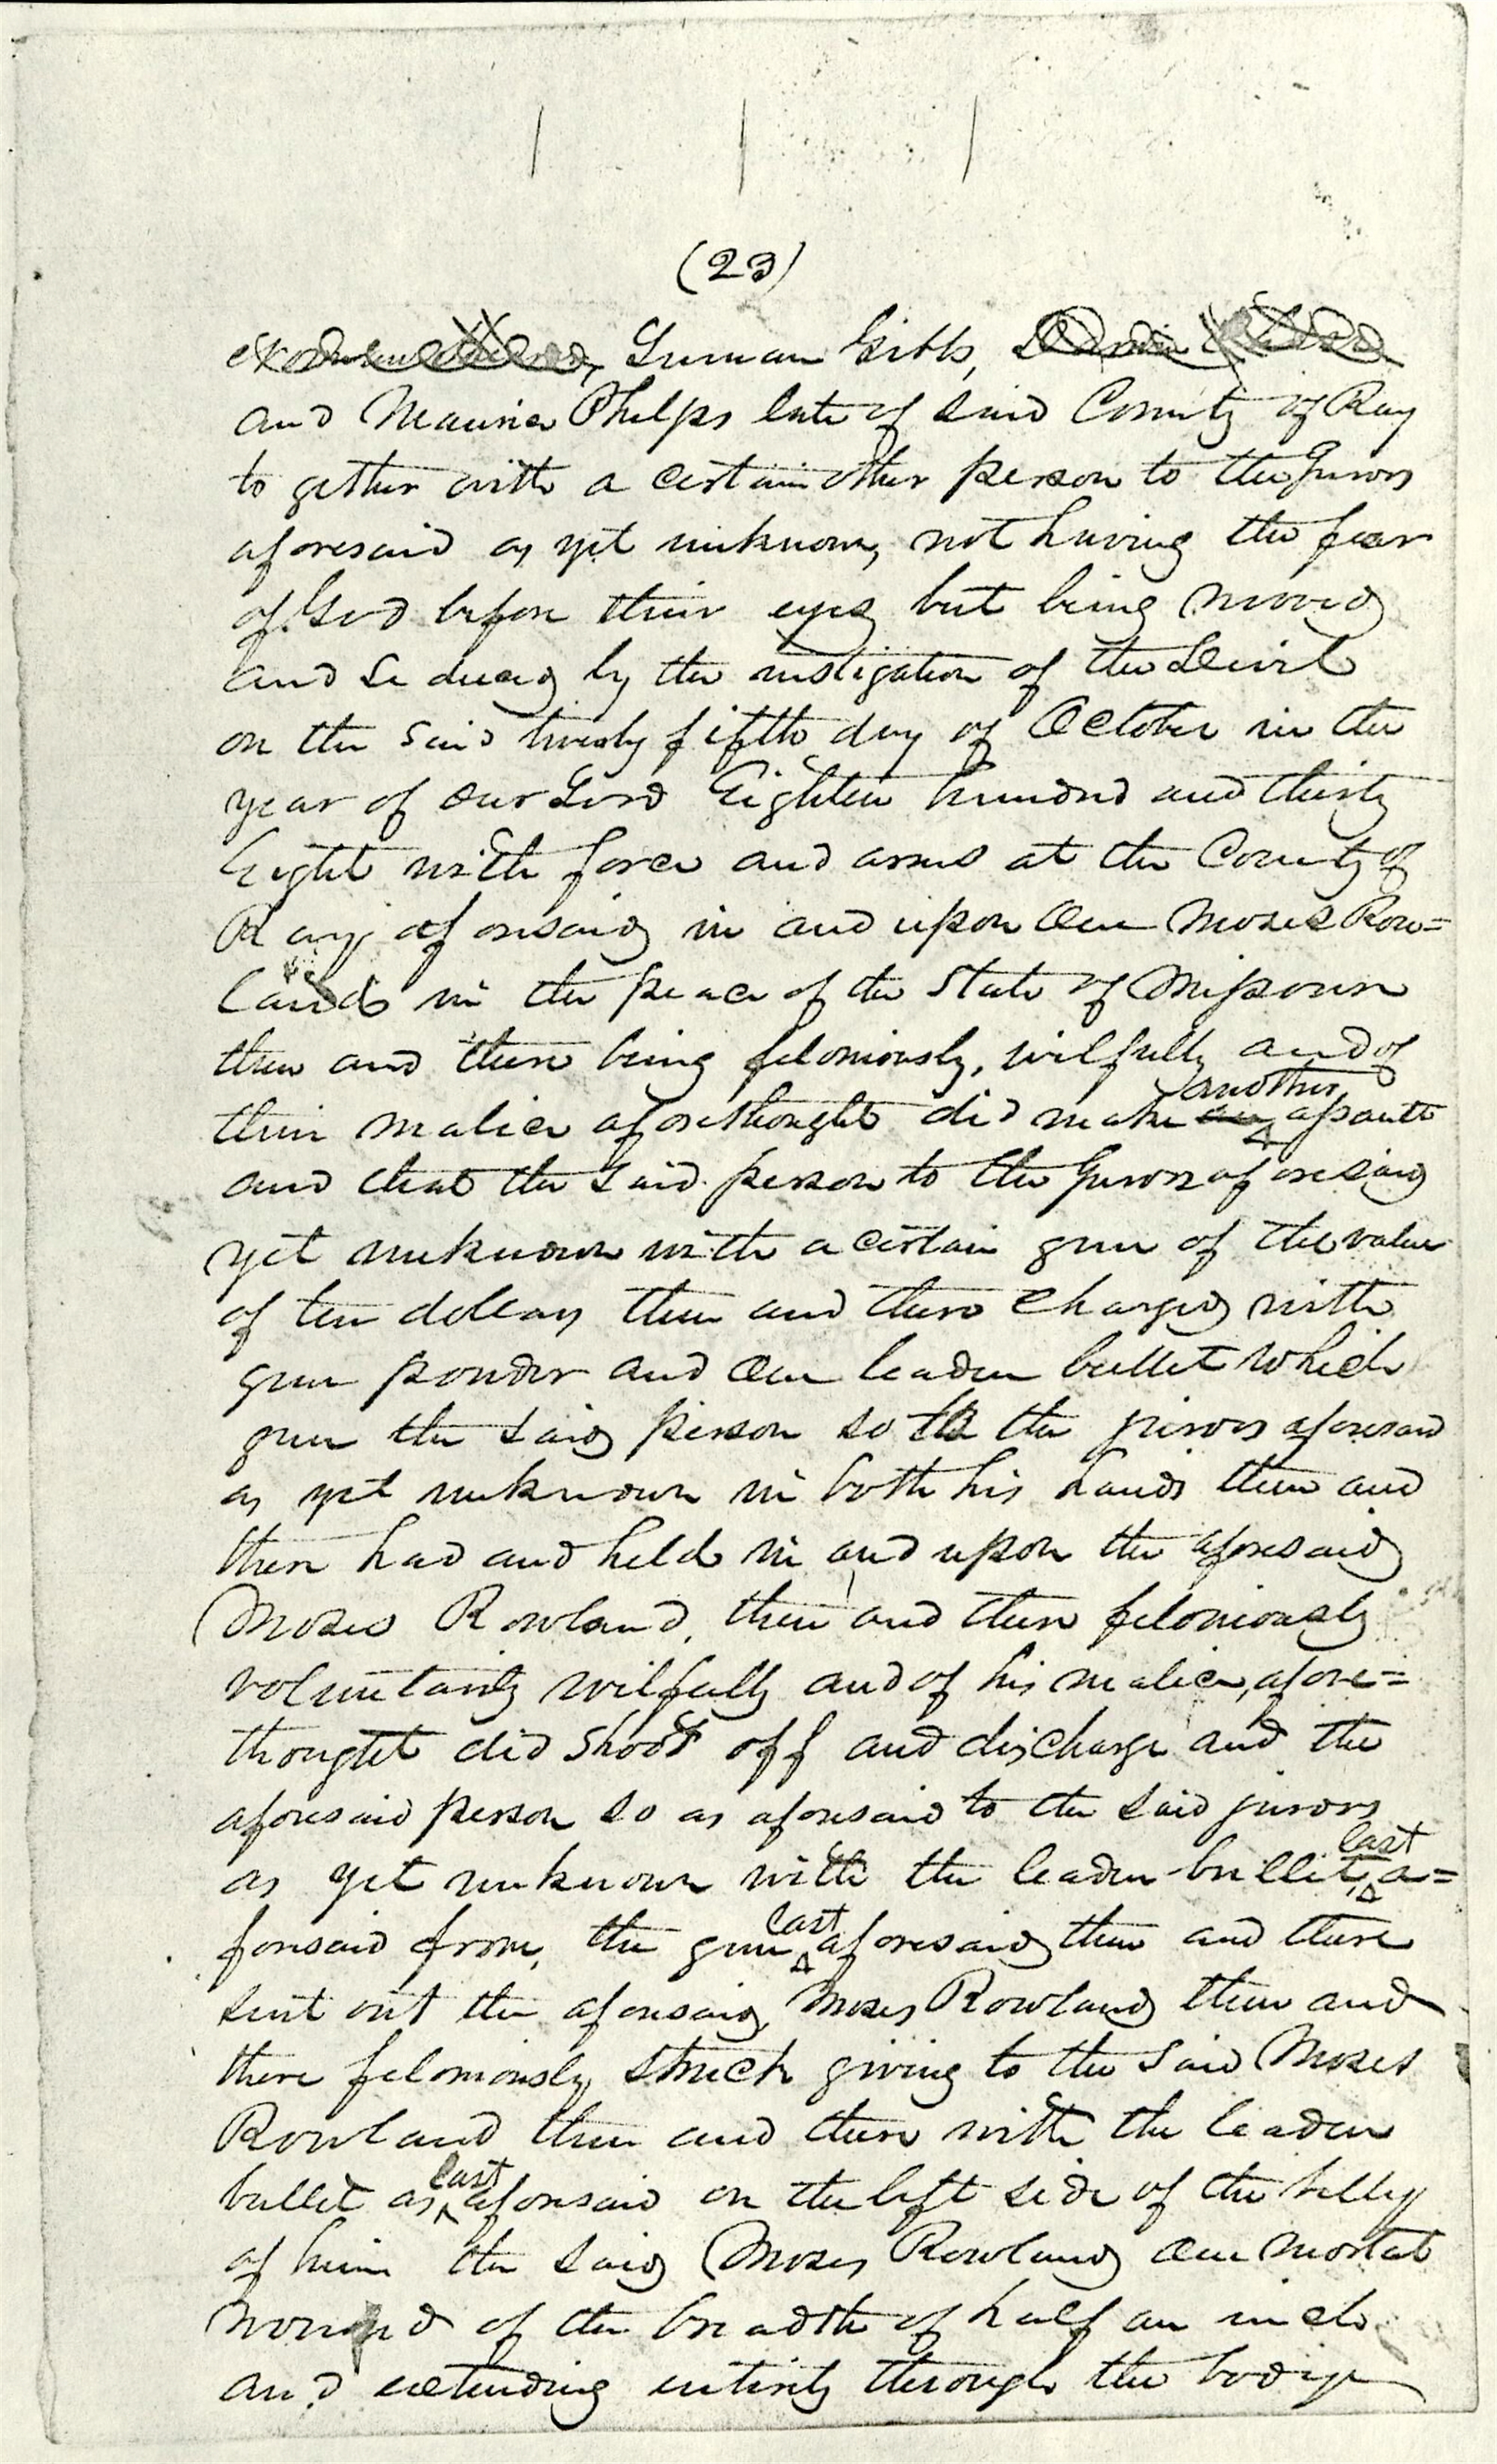 (23)
Luman Gibbs,
and Maurice Phelps late of said County of Ray
to gether with a certain other person to the Jurors
aforesaid as yet unknown, not having the fear
of God before their eyes but being moved
and Seduced by the instigation of the Devil
on the said twenty fifth day of October in the
year of our Lord Eighteen hundred and thirty
Eight with force and arms at the County of
Ray aforesaid in and upon one Moses Row=
land in the peace of the State of Missouri
then and there being feloniously, wilfully and of
their malice aforethought did make an another assault
and that the said person to the Jurors aforesaid
yet unknown with a certain gun of the value
of ten dollars then and there charged with
gun powder and one leaden bullet which
gun the said person so to the jurors aforesaid
as yet unknown in both his hands then and
there had and held in and upon the aforesaid
Moses Rowland, then and there feloniously
voluntarily wilfully and of his malice, afore=
thought did shoot off and discharge and the
aforesaid person so as aforesaid to the said jurors
as yet unknown with the leaden bullet, last a=
foresaid from, the gun last aforesaid then and there
sent out the aforesaid Moses Rowland then and
there feloniously struck giving to the said Moses
Rowland then and there with the leaden
bullet as last aforesaid on the left side of the belly
of him the said Moses Rowland one mortal
wound of the breadth of half an inch
and extending entirely through the body